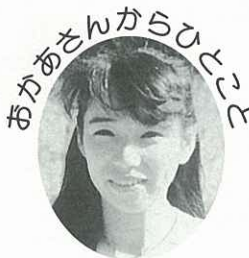 おかあさんからひとこと